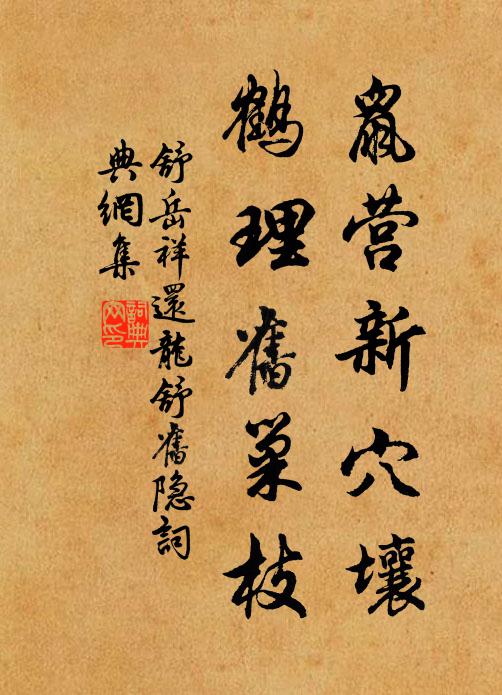 鼠营新穴壤
鶴理舊巢枝
舒岳祥還龍舒舊隐詞
典網集
詞典
网印